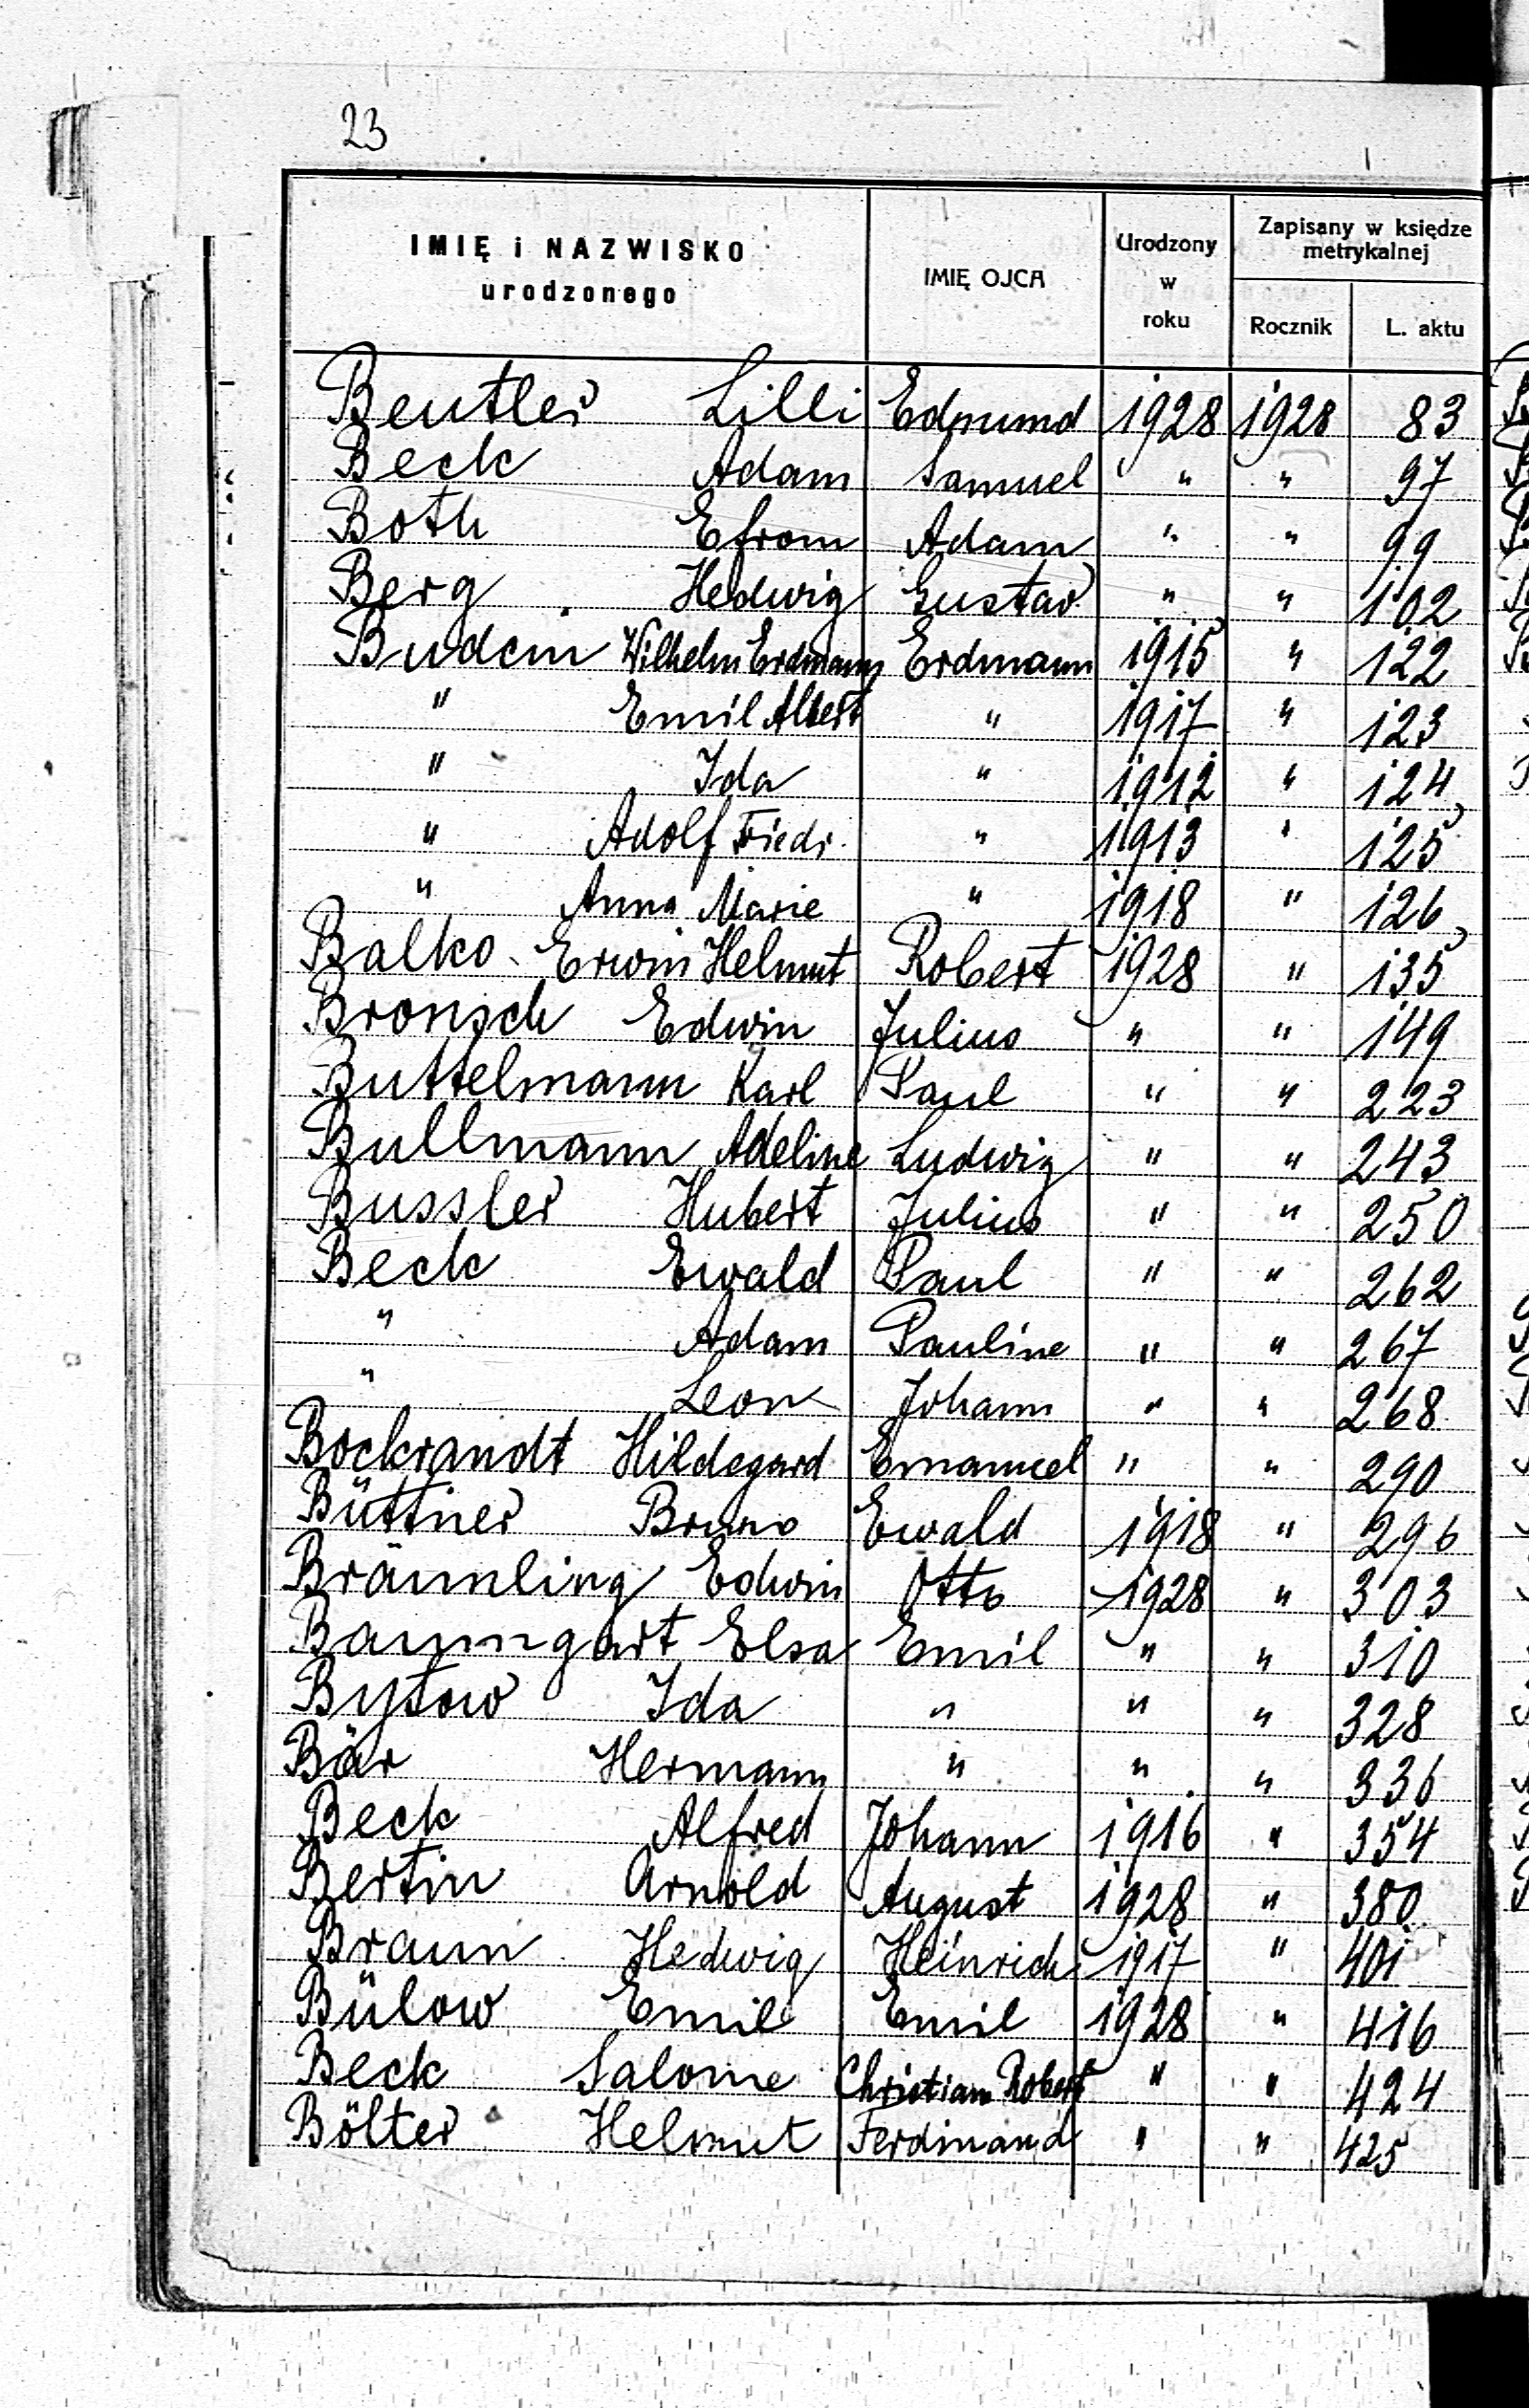 23
IMIĘ i NAZWISKO urodzonego | IMIĘ OJCA | Urodzony w roku | Zapisany w księdze metrykalnej
Rocznik | L. aktu
Beutler Lilli Edmund 1928 1928 83
Beck Adam Samuel " " 97
Both Efrom Adam " " 99
Berg Hedwig Gustav " " 102
Budein Wilhelm Erdmann Erdmann 1915 " 122
" Emil Albert " 1917 " 123
" Ida " 1912 " 124
" Adolf Friedr. " 1913 " 125
" Anna Marie " 1918 " 126
Balko Erwin Helmut Robert 1928 " 135
Bronsch Edwin Julius " " 149
Buttelmann Karl Paul " " 223
Bullmann Adeline Ludwig " " 243
Bussler Hubert Julius " " 250
Beck Ewald Paul " " 262
" Adam Pauline " " 267
" Leon Johann " " 268
Bockrandt Hildegard Emanuel " " 290
Büttner Bruno Ewald 1918 " 296
Bräunling Edwin Otto 1928 " 303
Baumgart Elsa Emil " " 310
Bytow Ida " " " 328
Bär Hermann " " " 336
Beck Alfred Johann 1916 " 354
Bertin Arnold August 1928 " 380
Braun Hedwig Heinrich 1917 " 401
Bülow Emil Emil 1928 " 416
Beck Salome Christian Robert " " 424
Bölter Helmut Ferdinand " " 425